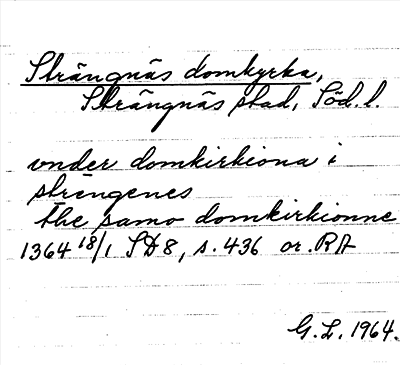 Strängnäs domkyrka,
Strängnäs stad, Söd. l.
vnder domkirkiona i
strengenes
the samo domkirkionne
1364 18/1 SD 8, s. 436 or. RA
G. L. 1964.